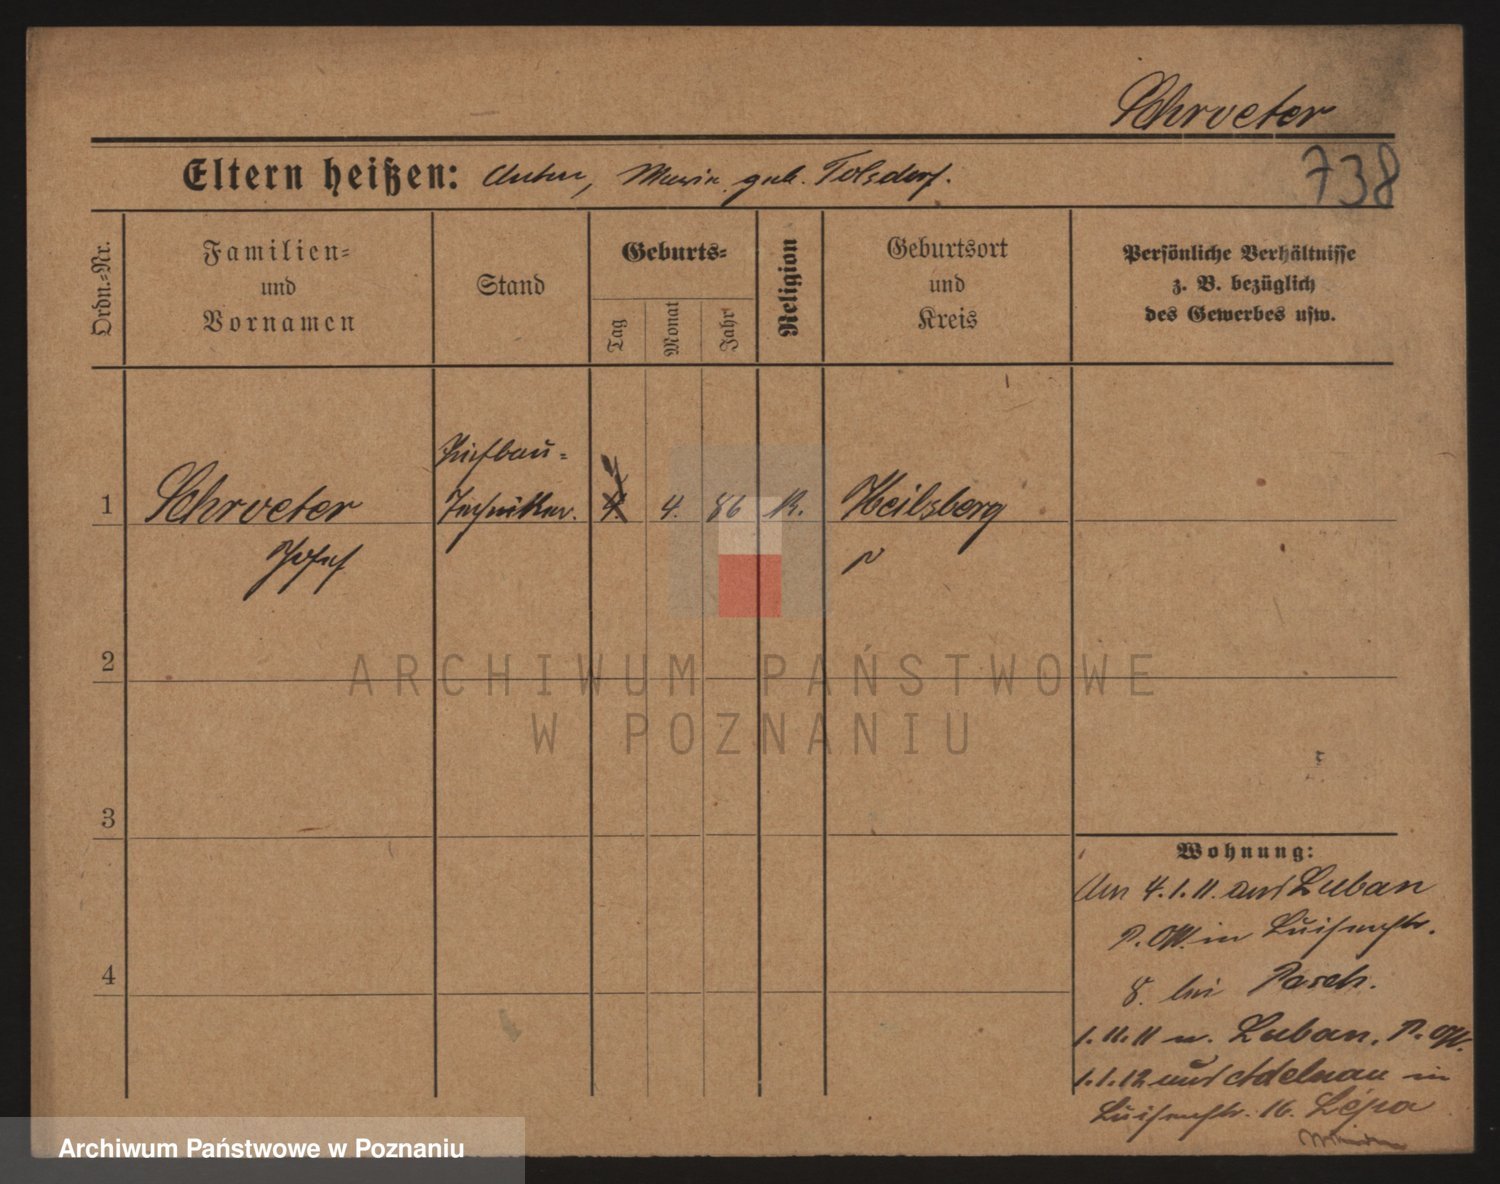 Schroeter
738
Eltern heißen: Anton, Maria geb. Tolsdorf.
Ordn.-Nr.
Familien-
und
Vornamen
Stand
Geburts-
Tag
Monat
Jahr
Religion
Geburtsort
und
Kreis
Persönliche Verhältnisse
z. B. bezüglich
des Gewerbes usw.
Tiefbau-
1 Schroeter Techniker. 4. 86 K. Heilsberg
Josef
2
3
4
Wohnung:
Am 4.1.11. aus Luban
P. O/W. in Luisenstr.
8. bei Pasch.
1.11.11 n. Luban, P. O/W.
1.1.12 aus Adelnau in
Luisenstr. 16. Lépa
ARCHIWUM PAŃSTWOWE
W POZNANIU
Archiwum Państwowe w Poznaniu